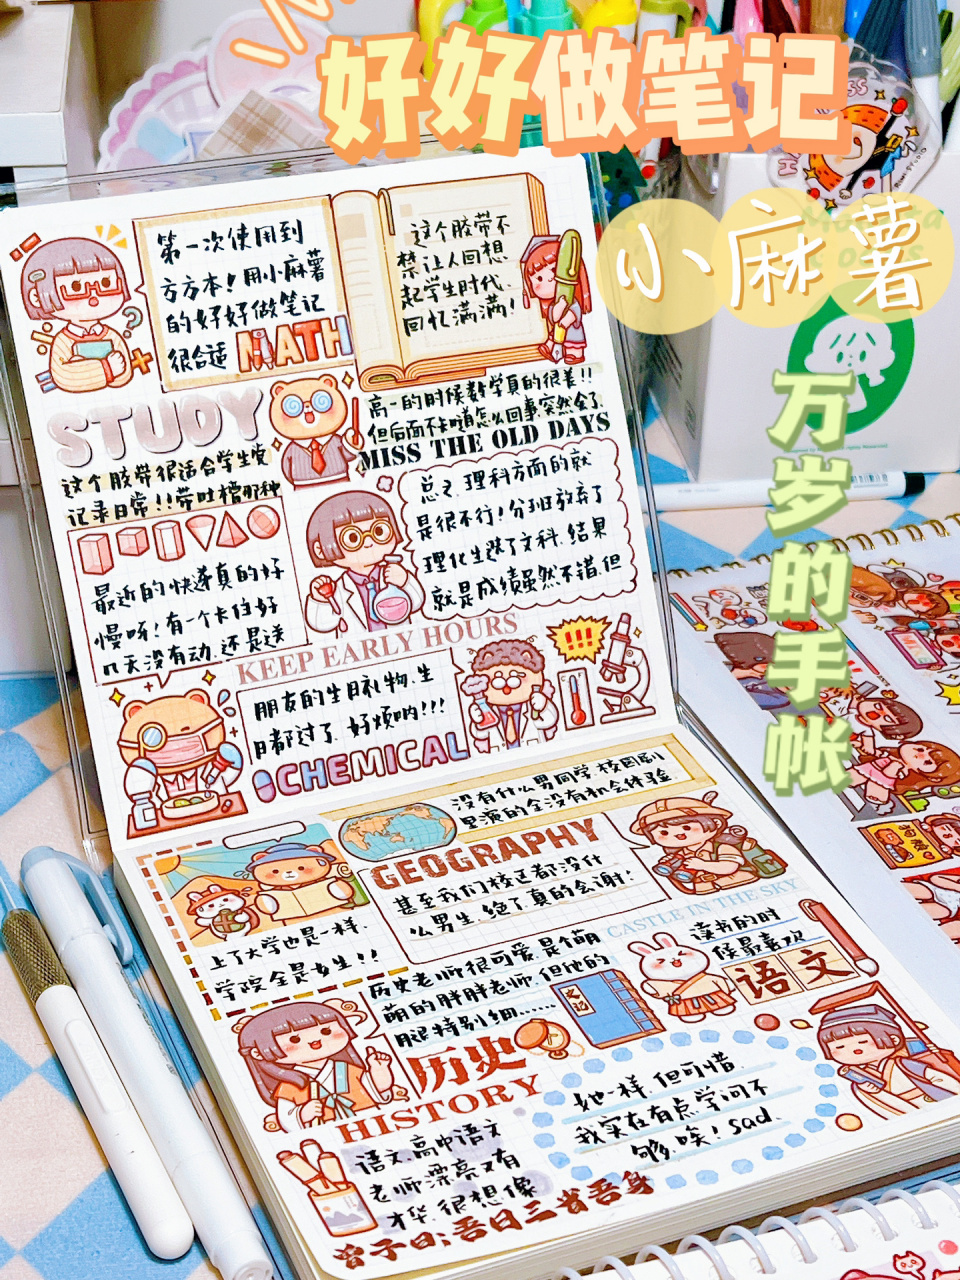 好好做笔记
小麻薯
万岁的手帐
第一次使用到
方方本!用小麻薯
的好好做笔记
很合适
MATH
这个胶带不
禁让人回想
起学生时代.
回忆满满!
STUDY
高一的时候数学真的很差!!
但后面不知道怎么回事.突然会了.
MISS THE OLD DAYS
这个胶带很适合学生党
记录日常!!带吐槽那种
总之.理科方面的就
是很不行!分班放弃了
理化生.选了文科.结果
就是成绩虽然不错.但
最近的快递真的好
慢呀!有一个卡住好
几天没有动.还是送
KEEP EARLY HOURS
朋友的生日礼物.生
日都过了.好烦呐!!!
!!!
CHEMICAL
没有什么男同学.校园剧
里演的全没有机会体验.
GEOGRAPHY
甚至我们校区都没什
么男生.绝了.真的会谢!
CASTLE IN THE SKY
上了大学也是一样.
学院全是女生!!
历史老师很可爱.是个萌
萌的胖胖老师.但他的
腿特别细......
读书的时
候最喜欢
语文
史记
历史
HISTORY
语文.高中语文
老师漂亮又有
才华.很想像
她一样.但可惜.
我实在有点学问不
够.唉!sad.
曾子曰:吾日三省吾身